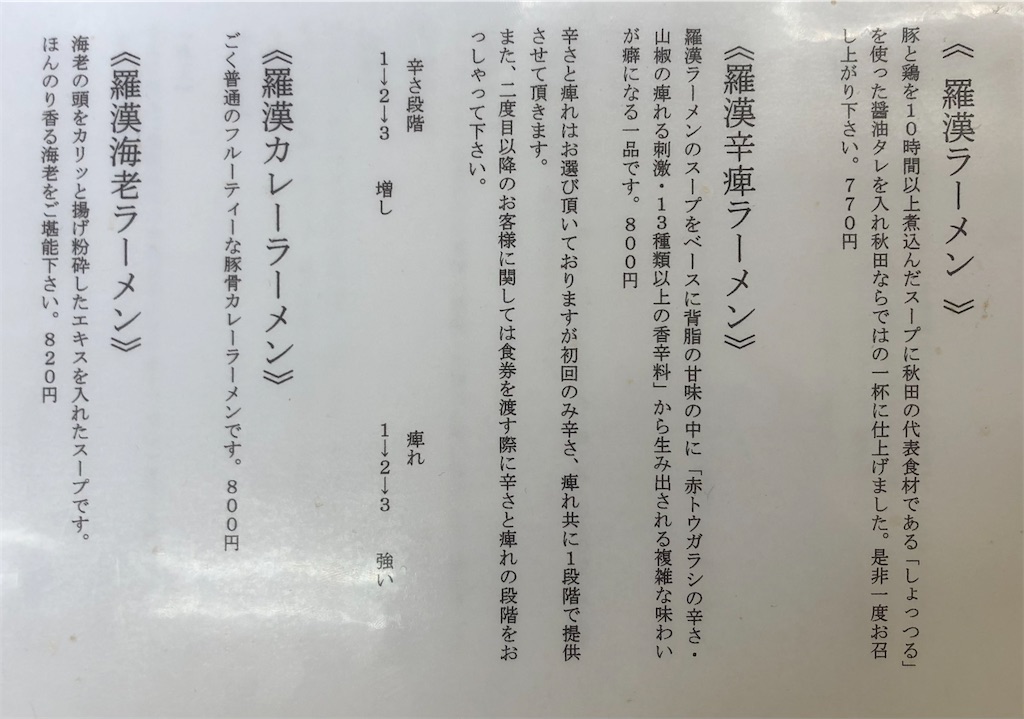 《 羅漢ラーメン 》
豚と鶏を10時間以上煮込んだスープに秋田の代表食材である「しょっつる」
を使った醤油タレを入れ秋田ならではの一杯に仕上げました。是非一度お召
し上がり下さい。770円
《羅漢辛痺ラーメン》
羅漢ラーメンのスープをベースに背脂の甘味の中に「赤トウガラシの辛さ・
山椒の痺れる刺激・13種類以上の香辛料」から生み出される複雑な味わい
が癖になる一品です。800円
辛さと痺れはお選び頂いておりますが初回のみ辛さ、痺れ共に1段階で提供
させて頂きます。
また、二度目以降のお客様に関しては食券を渡す際に辛さと痺れの段階をお
っしゃって下さい。
辛さ段階 痺れ
1→2→3 増し 1→2→3 強い
《羅漢カレーラーメン》
ごく普通のフルーティーな豚骨カレーラーメンです。800円
《羅漢海老ラーメン》
海老の頭をカリッと揚げ粉砕したエキスを入れたスープです。
ほんのり香る海老をご堪能下さい。820円